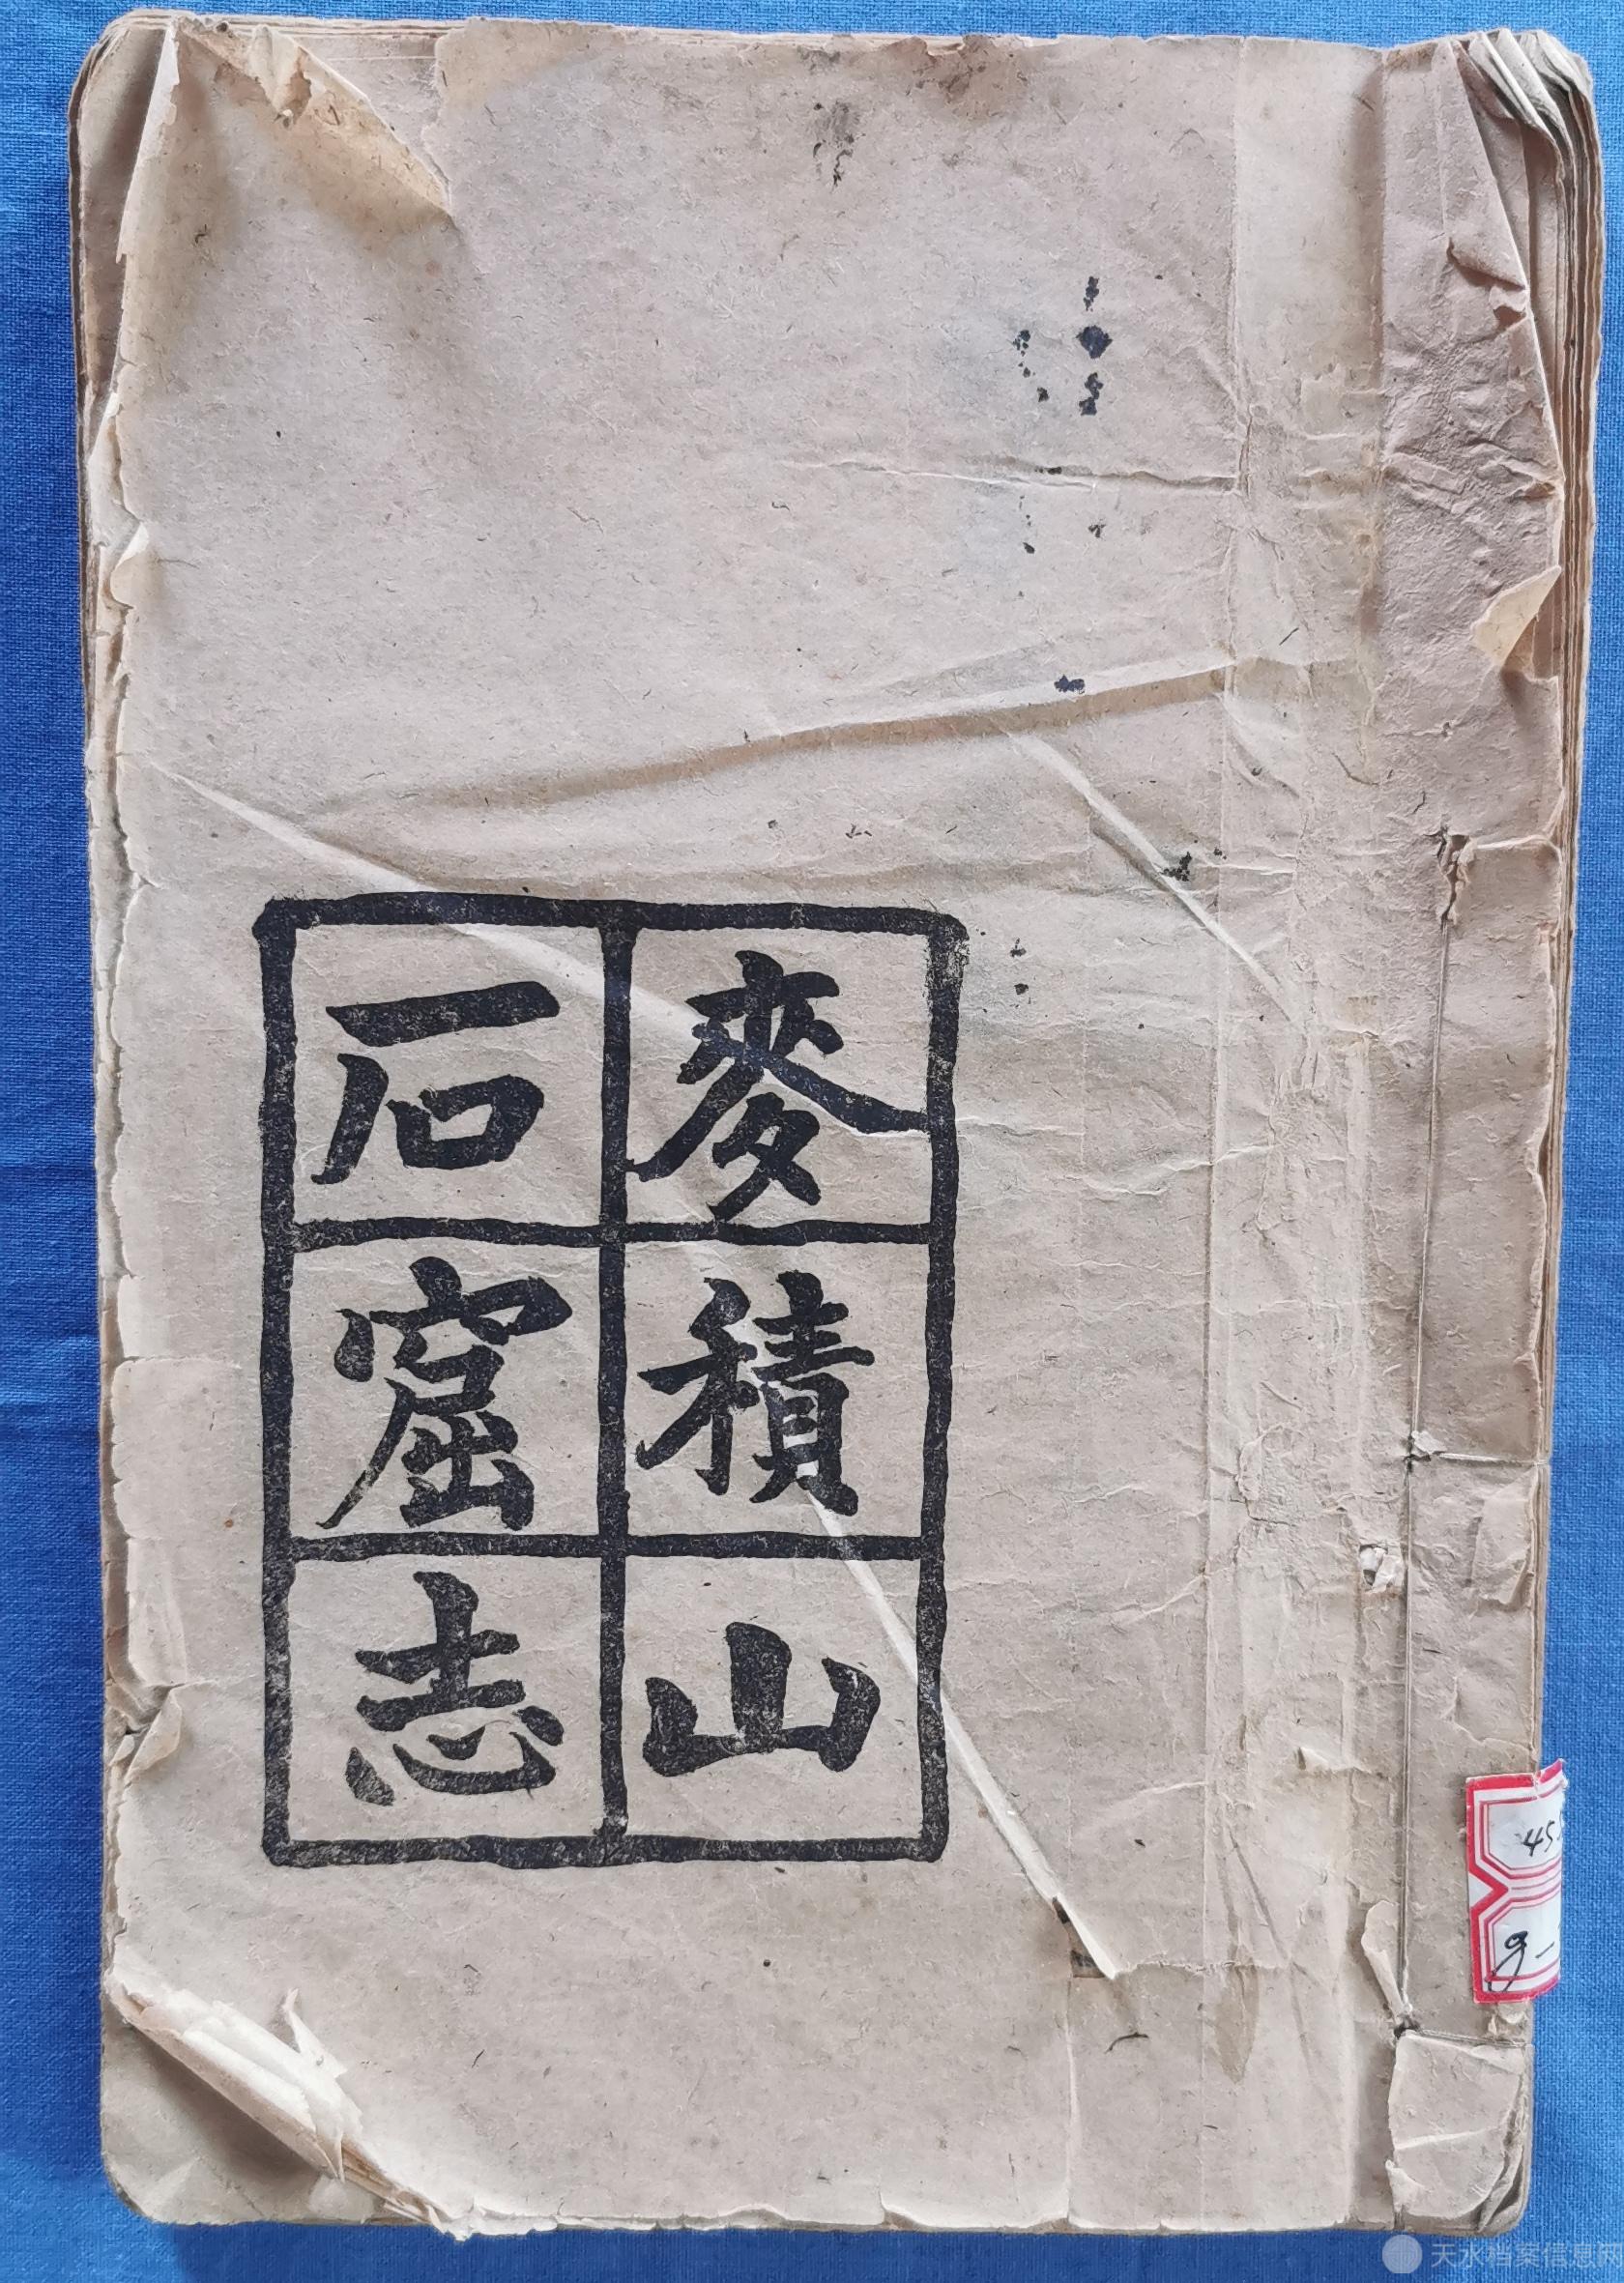 麥積山
石窟志
45
9-
天水档案信息网